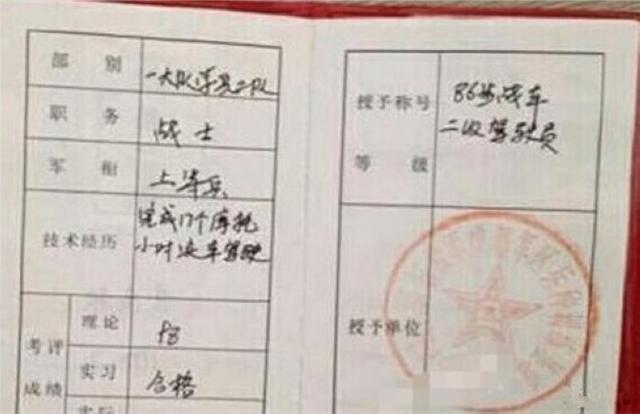 部别
一大队学员二队
职务
战士
军衔
上等兵
技术经历
完成17个摩托
小时汽车驾驶
考评
成绩
理论
实习
合格
实际
授予称号
等级
86步战车
二级驾驶员
授予单位